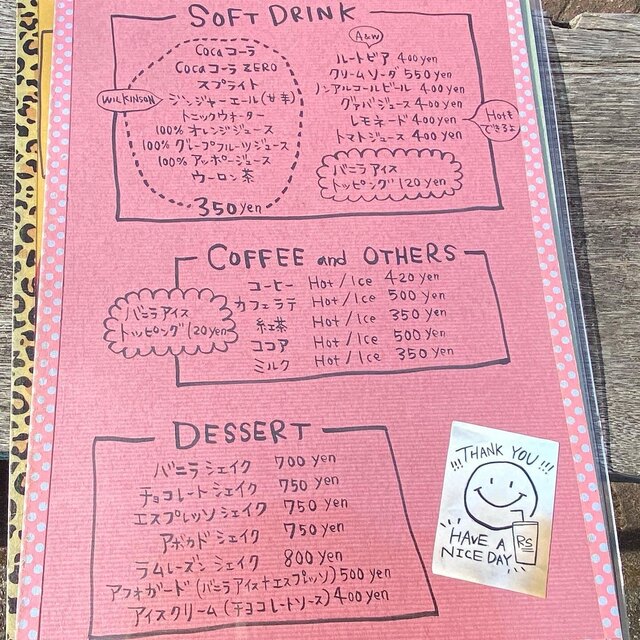 SOFT DRINK
Coca コーラ
Coca コーラ ZERO
スプライト
WILKINSON
ジンジャーエール(甘辛)
トニックウォーター
100% オレンジジュース
100% グレープフルーツジュース
100% アップルジュース
ウーロン茶
350 yen
A&W
ルートビア 400 yen
クリームソーダ 550 yen
ノンアルコールビール 400 yen
グァバジュース 400 yen
レモネード 400 yen
Hotも
できるよ
トマトジュース 400 yen
バニラアイス
トッピング 120 yen
COFFEE and OTHERS
コーヒー Hot / Ice 420 yen
カフェラテ Hot / Ice 500 yen
紅茶 Hot / Ice 350 yen
ココア Hot / Ice 500 yen
ミルク Hot / Ice 350 yen
バニラアイス
トッピング 120 yen
DESSERT
バニラシェイク 700 yen
チョコレートシェイク 750 yen
エスプレッソシェイク 750 yen
アボカドシェイク 750 yen
ラムレーズンシェイク 800 yen
アフォガード(バニラアイス+エスプレッソ) 500 yen
アイスクリーム(チョコレートソース) 400 yen
!!! THANK YOU !!!
RS
HAVE A
NICE DAY